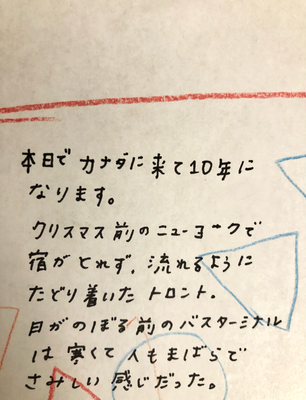 本日で カナダに 来て10年に
なります。
クリスマス前のニューヨークで
宿がとれず、流れるように
たどり着いた トロント.
日がのぼる前のバスターミナル
は 寒くて 人もまばらで
さみしい 感じだった。